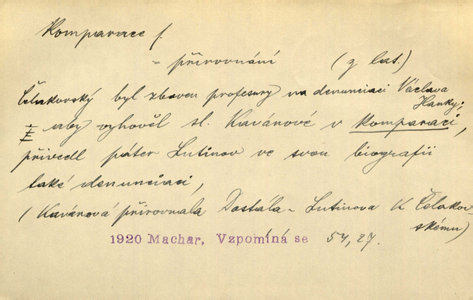 Komparace f
= přirovnání (z lat.)
Čelakovský byl zbaven profesury na denunciaci Václava
Hanky;
aby vyhověl sl. Kavánové v komparaci,
přivedl páter Lutinov ve svou biografii
také denunciaci,
(Kavánová přirovnala Dostála-Lutinova k Čelakov-
skému)
1920 Machar, Vzpomíná se 54, 27.